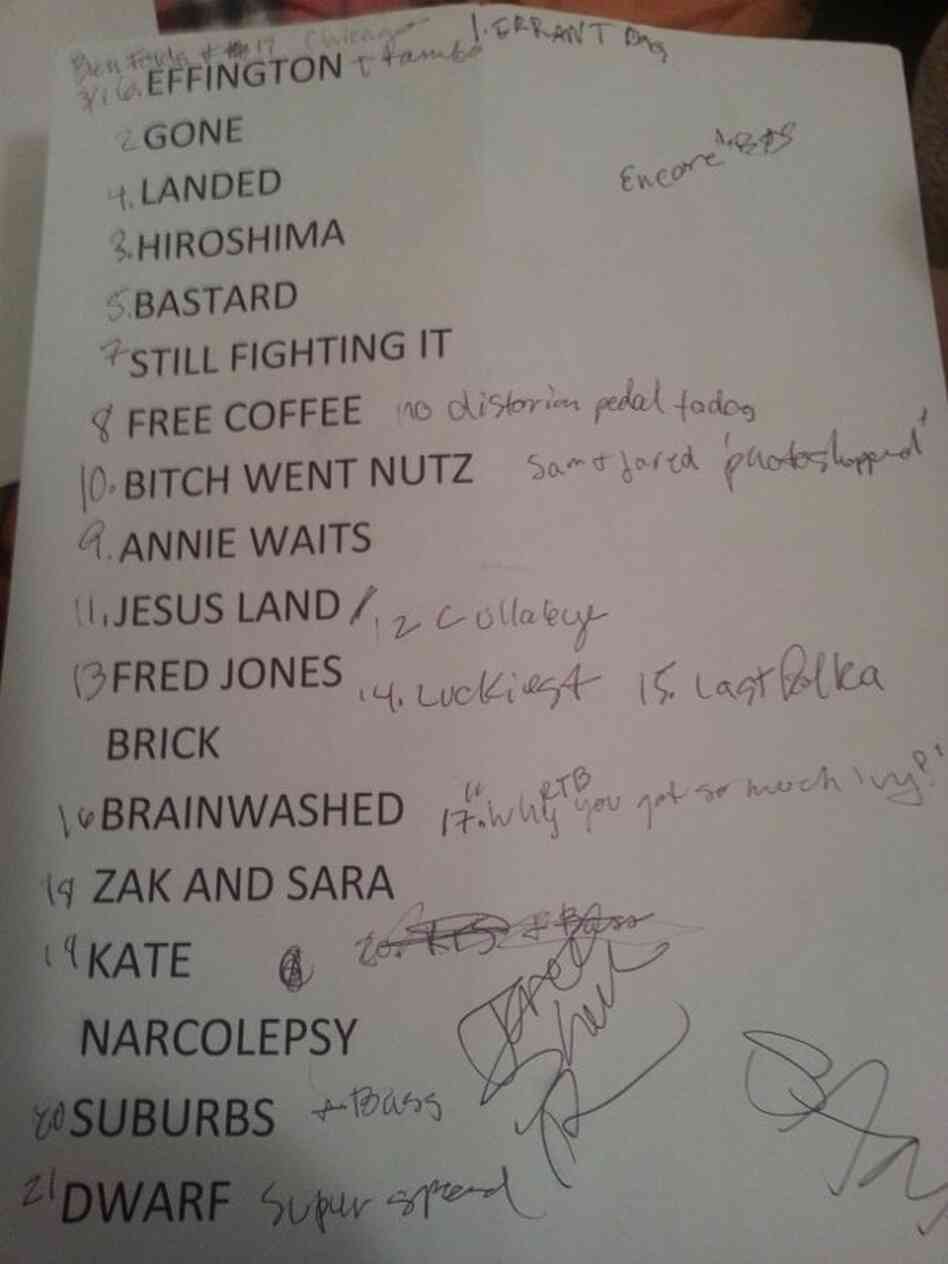 Ben Folds # 17 Chicago 1. ERRANT DOG
6. EFFINGTON + tambo
2 GONE
Encore
4. LANDED
3. HIROSHIMA
5. BASTARD
7 STILL FIGHTING IT
8 FREE COFFEE no distortion pedal today
10. BITCH WENT NUTZ Sam + Jared 'photoshopped'
9. ANNIE WAITS
11. JESUS LAND / 12 Cullaby
13 FRED JONES 14. Luckiest 15. Last Polka
BRICK
16 BRAINWASHED 17. "Why RTB you got so much ivy?"
18 ZAK AND SARA
19 KATE
NARCOLEPSY
20 SUBURBS + Bass
21 DWARF Super spread